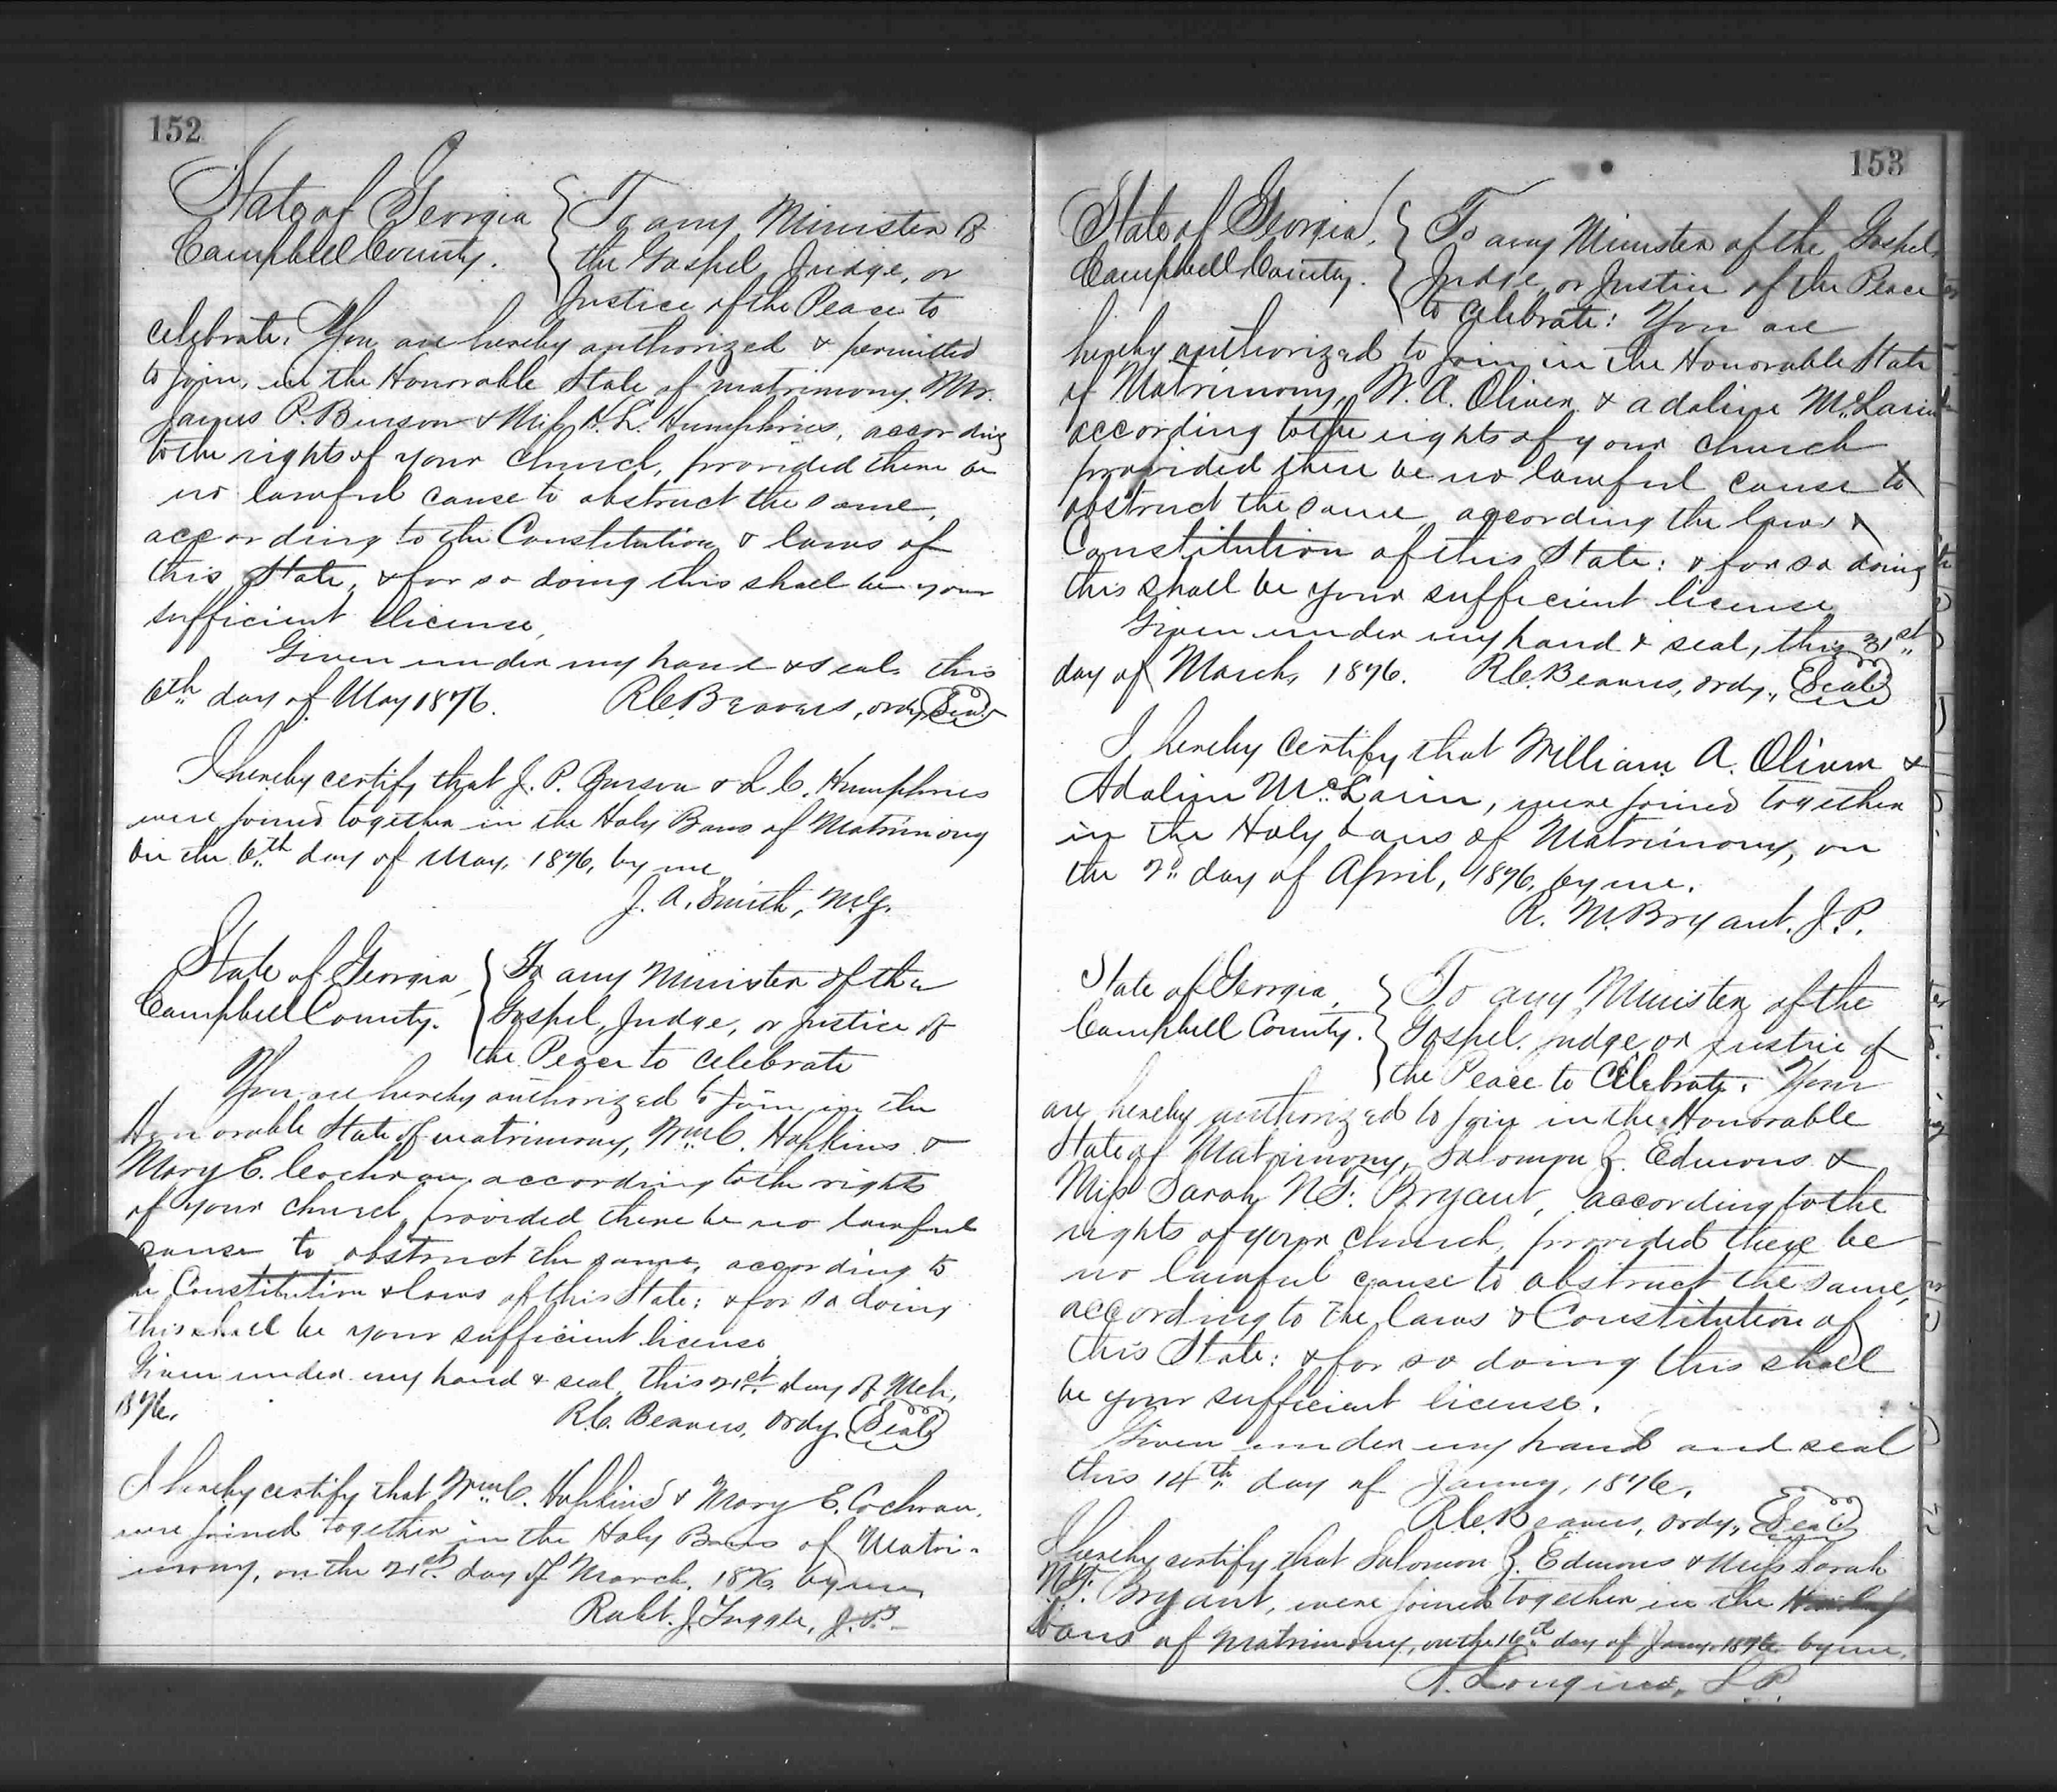 152
State of Georgia
Campbell County.
To any Minister of
the Gospel, Judge, or
Justice of the Peace to
celebrate. You are hereby authorized & permitted
to join, in the Honorable State of matrimony. Mr.
James P. Burson & Miss Humphries, according
to the rights of your church, provided there be
no lawful cause to obstruct the same,
according to the Constitution & laws of
this State, & for so doing this shall be your
sufficient license,
Given under my hand & seal, this
6th day of May 1876. R.C. Beavers, ordy, Seal
I hereby certify that J. P. Burson & L. C. Humphries
were joined together in the Holy Bans of Matrimony
on the 6th day of May, 1876, by me
J. A. Smith, M.G.
State of Georgia,
Campbell County.
To any Minister of the
Gospel, Judge, or justice of
the Peace to celebrate
You are hereby authorized to join in the
Honorable State of matrimony, Wm C. Hopkins &
Mary E. Cochran, according to the rights
of your church, provided there be no lawful
cause to obstruct the same, according to
Constitution & laws of this State: & for so doing
this shall be your sufficient license
Given under my hand & seal, this 21st day of Mch,
1876. R.C. Beavers, Ordy. Seal
I hereby certify that Wm C. Hopkins & Mary E. Cochran,
were joined together in the Holy Bans of Matri-
mony, on the 21st day of March, 1876, by me,
Robt. J. Tuggle, J.P.
153
State of Georgia,
Campbell County.
To any Minister of the Gospel,
Judge, or Justice of the Peace
to celebrate: You are
hereby authorized to join in the Honorable State
of Matrimony, W. A. Oliver & Adaline McLarin
according to the rights of your church
provided there be no lawful cause to
obstruct the same, according the laws &
Constitution of this State: & for so doing
this shall be your sufficient license
Given under my hand & seal, this 31st
day of March, 1876. R.C. Beavers, ordy., Seal
I hereby certify that William A. Oliver &
Adaline McLarin, were joined together
in the Holy bans of Matrimony, on
the 2d day of April, 1876, by me.
R. M. Bryant. J.P.
State of Georgia,
Campbell County.
To any Minister of the
Gospel, judge or justice of
the Peace to Celebrate: You
are hereby authorized to join in the Honorable
State of Matrimony, Solomon Z. Edmons &
Miss Sarah N.F. Bryant, according to the
rights of your church, provided there be
no lawful cause to obstruct the same,
according to the laws & Constitution of
this State: & for so doing this shall
be your sufficient license.
Given under my hand and seal
this 14th day of Janny, 1876.
R.C. Beavers, ordy., Seal
I hereby certify that Solomon Z. Edmons & Miss Sarah
N.F. Bryant, were joined together in the
bans of Matrimony, on the 16th day of Jany. 1876 by me.
Longino, J.P.